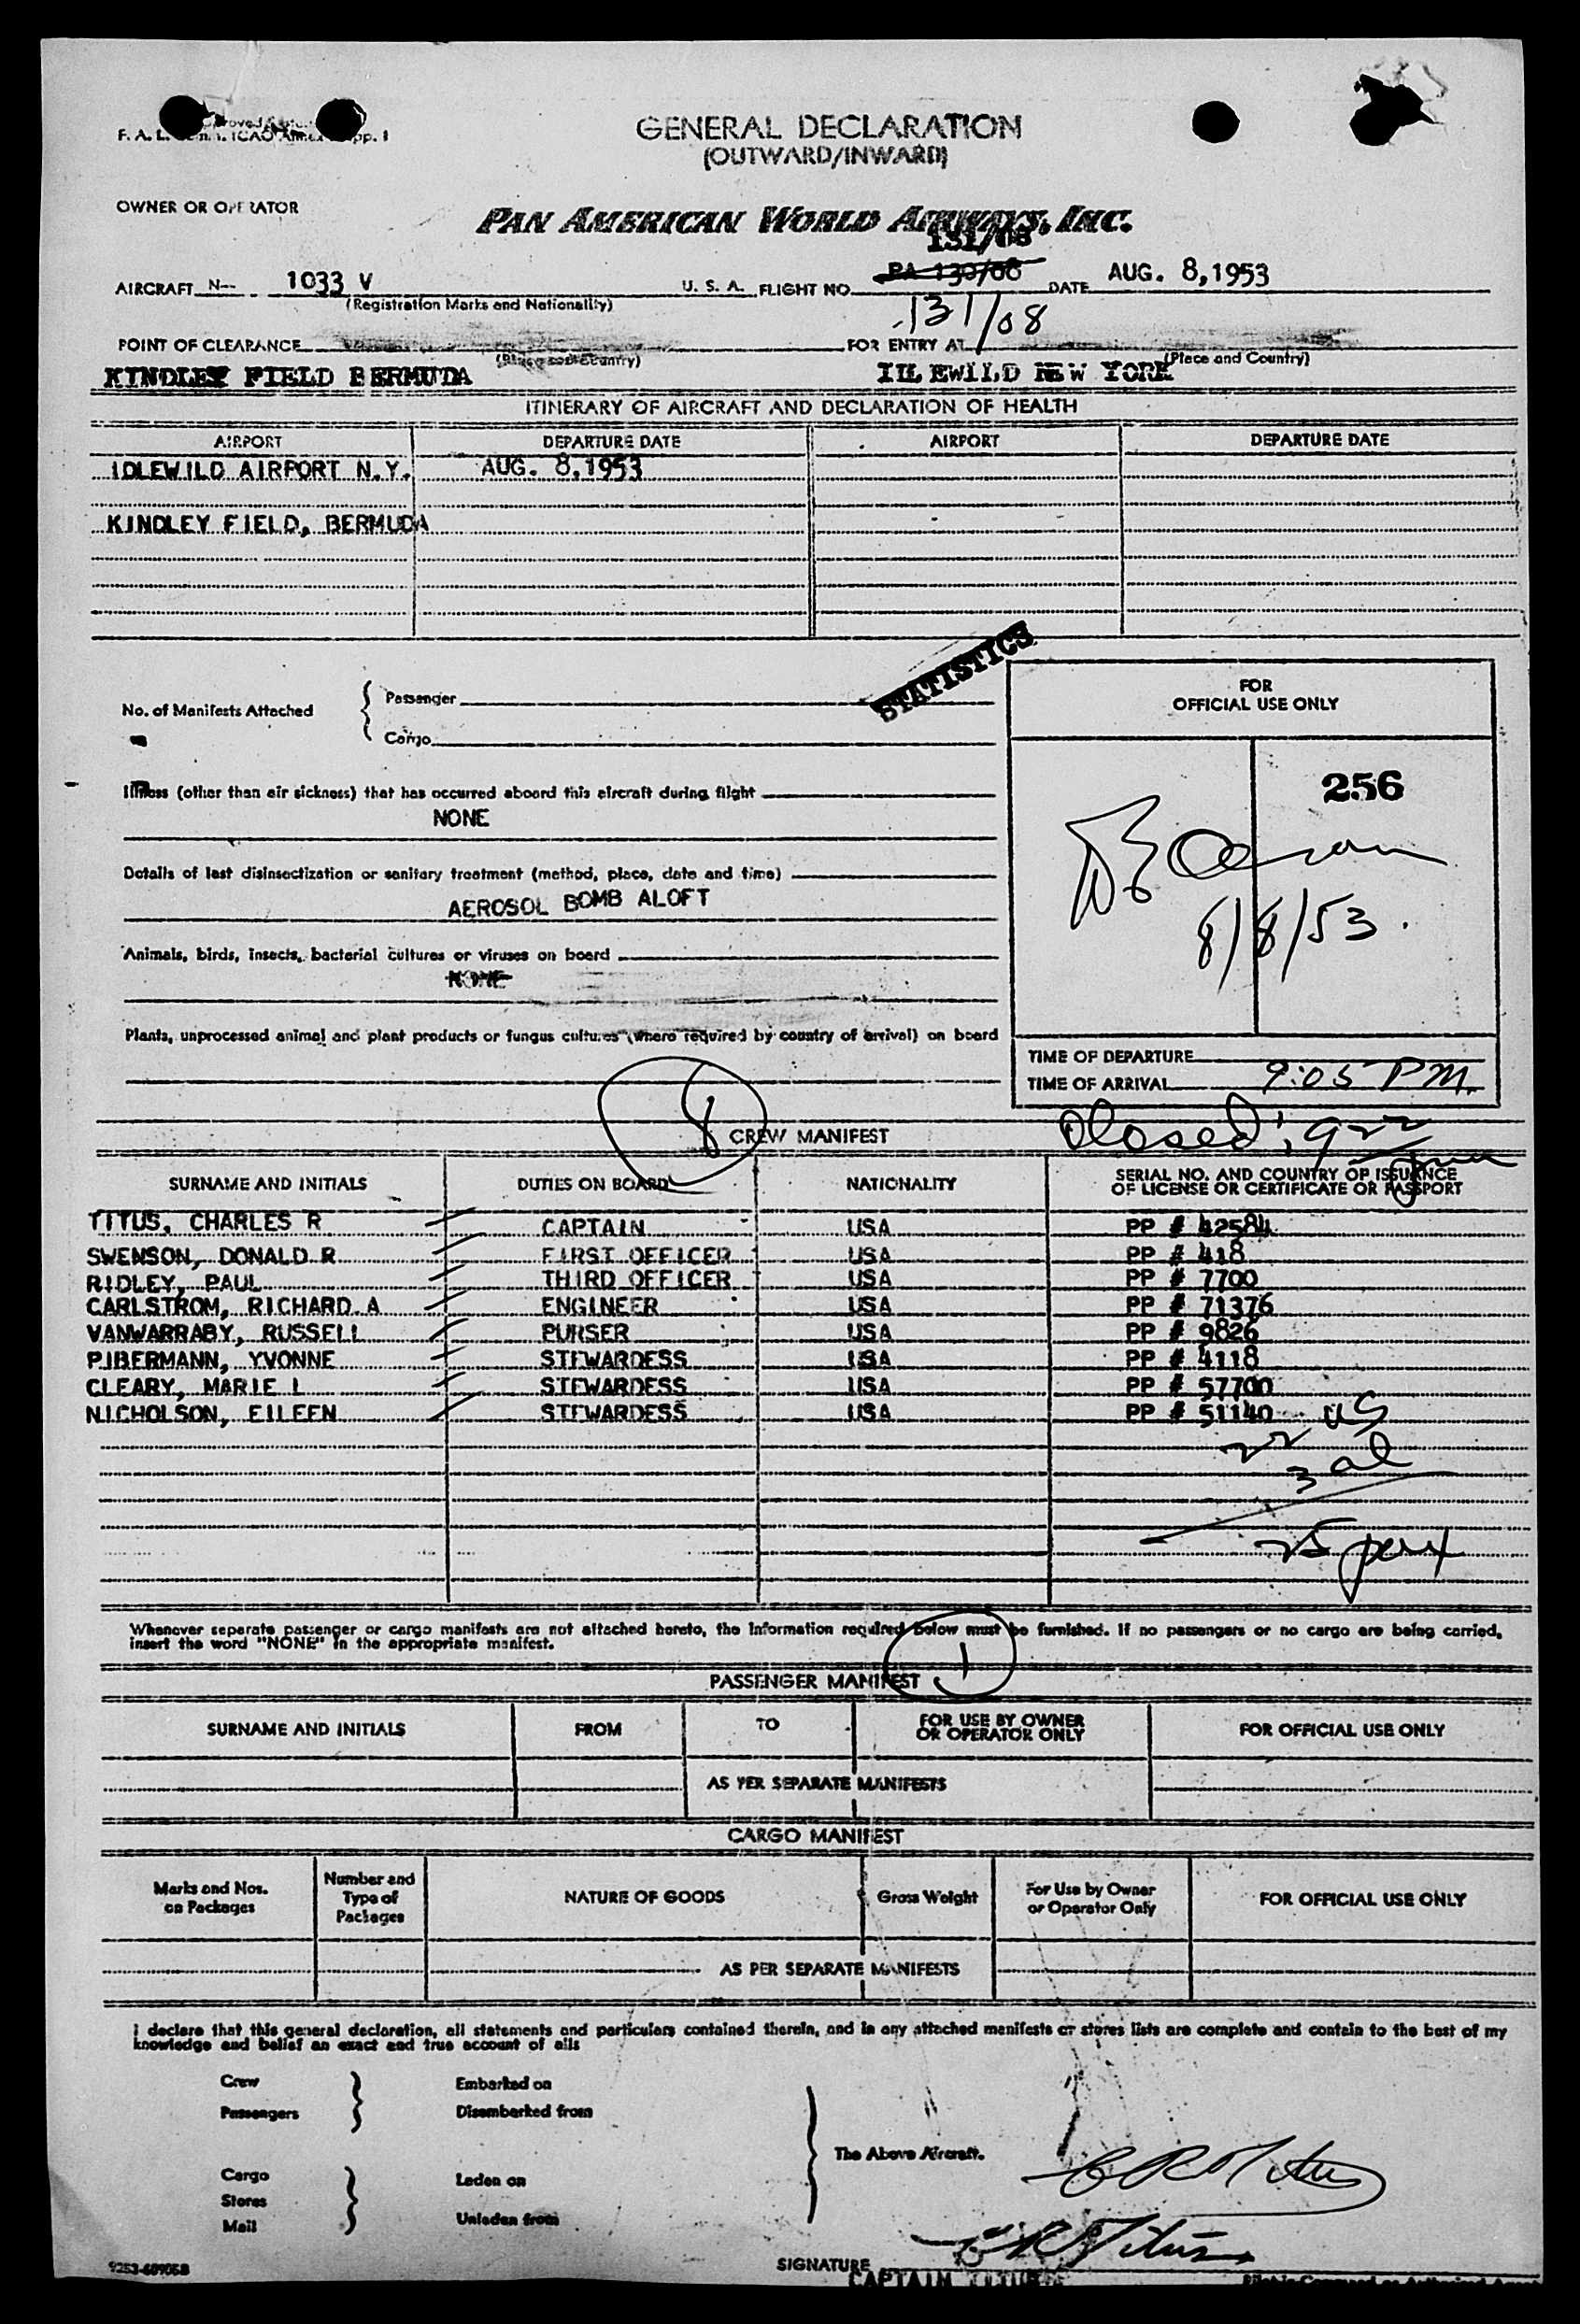 F. A. L. ICAO Annex App. 1
GENERAL DECLARATION
(OUTWARD/INWARD)
OWNER OR OPERATOR
PAN AMERICAN WORLD AIRWAYS, INC.
131/08
AIRCRAFT N-- 1033 V U. S. A. FLIGHT NO. PA 130/08 DATE AUG. 8,1953
(Registration Marks and Nationality)
131/08
POINT OF CLEARANCE FOR ENTRY AT
(Place and Country) (Place and Country)
KINDLEY FIELD BERMUDA IDLEWILD NEW YORK
ITINERARY OF AIRCRAFT AND DECLARATION OF HEALTH
AIRPORT DEPARTURE DATE AIRPORT DEPARTURE DATE
IDLEWILD AIRPORT N.Y. AUG. 8,1953
KINDLEY FIELD, BERMUDA
STATISTICS
FOR
OFFICIAL USE ONLY
No. of Manifests Attached
Passenger
Cargo
256
Illness (other than air sickness) that has occurred aboard this aircraft during flight
NONE
Details of last disinsectization or sanitary treatment (method, place, date and time)
AEROSOL BOMB ALOFT
8/8/53.
Animals, birds, insects, bacterial cultures or viruses on board
NONE
Plants, unprocessed animal and plant products or fungus cultures (where required by country of arrival) on board
TIME OF DEPARTURE
TIME OF ARRIVAL 9:05 PM.
8
Closed; 922
CREW MANIFEST
SURNAME AND INITIALS DUTIES ON BOARD NATIONALITY SERIAL NO. AND COUNTRY OF ISSUANCE
OF LICENSE OR CERTIFICATE OR PASSPORT
TITUS, CHARLES R CAPTAIN USA PP # 42584
SWENSON, DONALD R FIRST OFFICER USA PP # 418
RIDLEY, PAUL THIRD OFFICER USA PP # 7700
CARLSTROM, RICHARD A ENGINEER USA PP # 71376
VANWARRABY, RUSSELL PURSER USA PP # 9826
PIBERMANN, YVONNE STEWARDESS USA PP # 4118
CLEARY, MARIE L STEWARDESS USA PP # 57700
NICHOLSON, EILEEN STEWARDESS USA PP # 51140
22 US
3 al
25 pax
Whenever separate passenger or cargo manifests are not attached hereto, the information required below must be furnished. If no passengers or no cargo are being carried,
insert the word "NONE" in the appropriate manifest.
1
PASSENGER MANIFEST
SURNAME AND INITIALS FROM TO FOR USE BY OWNER
OR OPERATOR ONLY FOR OFFICIAL USE ONLY
AS PER SEPARATE MANIFESTS
CARGO MANIFEST
Marks and Nos.
on Packages
Number and
Type of
Packages
NATURE OF GOODS Gross Weight
For Use by Owner
or Operator Only
FOR OFFICIAL USE ONLY
AS PER SEPARATE MANIFESTS
I declare that this general declaration, all statements and particulars contained therein, and in any attached manifests or stores lists are complete and contain to the best of my
knowledge and belief an exact and true account of all:
Crew Embarked on
Passengers Disembarked from
The Above Aircraft.
Cargo Laden on
Stores
Mail Unladen from
C R Titus
C R Titus
SIGNATURE
CAPTAIN TITUS
9253-68905B